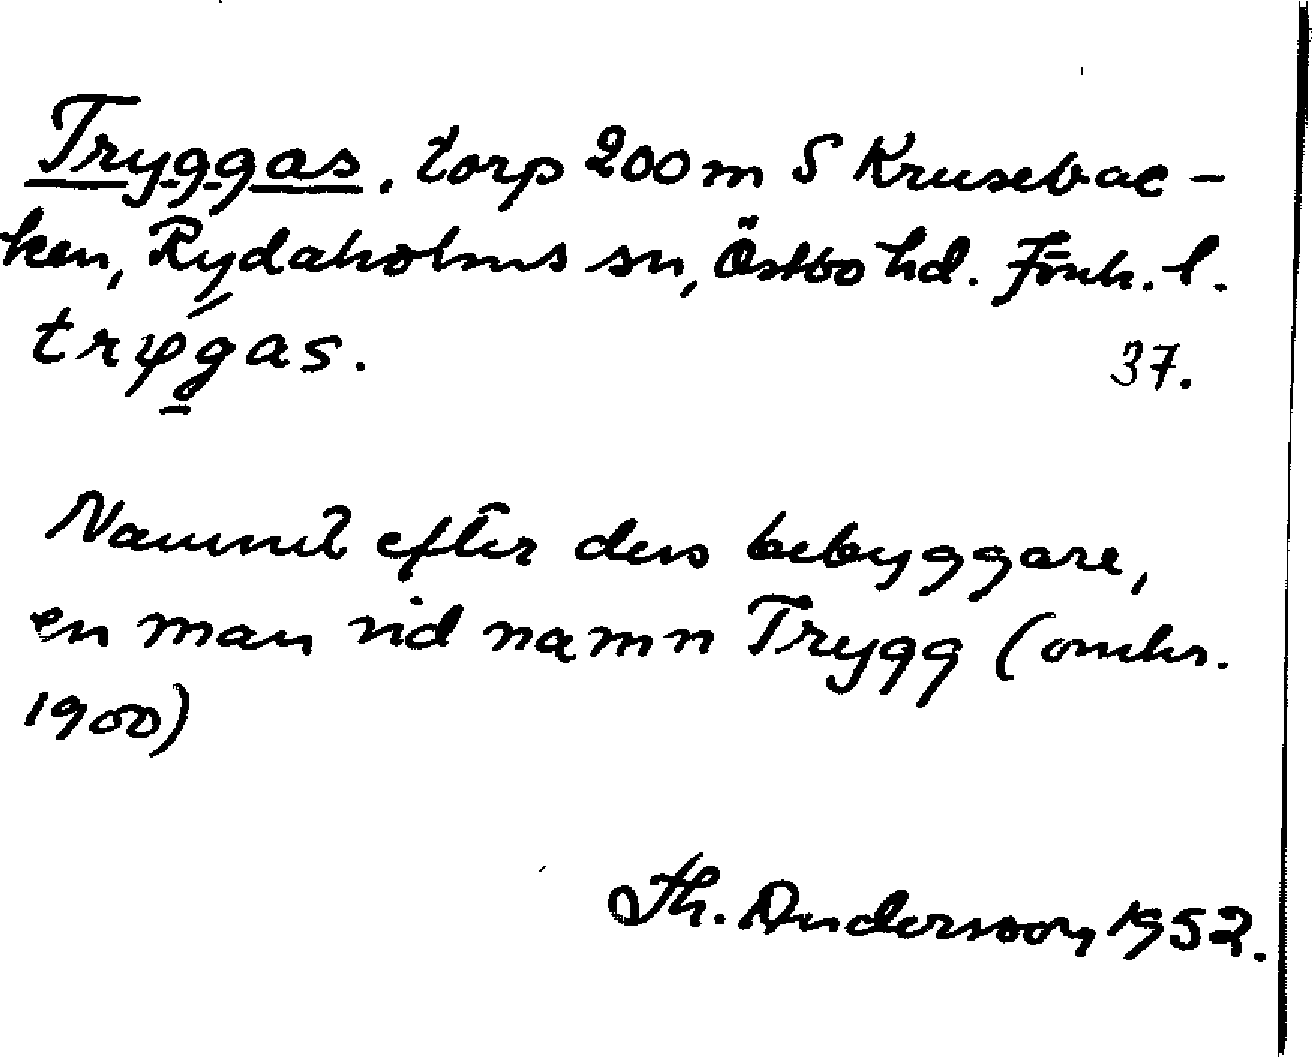 Tryggas, torp 200 m S Krusebac-
ken, Rydaholms sn, Östbo hd. Jönk. l.
trýgas.
37.
Namnet efter dess bebyggare,
en man vid namn Trygg (omkr.
1900)
Th. Andersson, 1952.